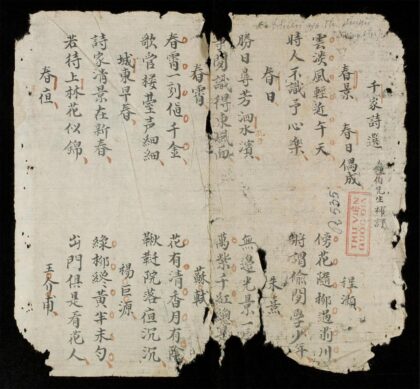 千家詩選
先生
春景 春日偶成 程灝
雲淡風輕近午天 傍花隨柳過前川
時人不識予心樂 將謂偷閑學少年
春日 朱熹
勝日尋芳泗水濱 無邊光景一
閑識得東風面 萬紫千紅
春霄 蘇軾
春霄一刻値千金 花有清香月有陰
歌官楼臺声細細 鞦韆院落亱沉沉
城東早春 楊巨源
詩家清景在新春 綠柳纔黃半未匀
若待上林花似錦 出門俱是看花人
春亱 王介甫
R.535
THƯ VIỆN
QUỐC GIA